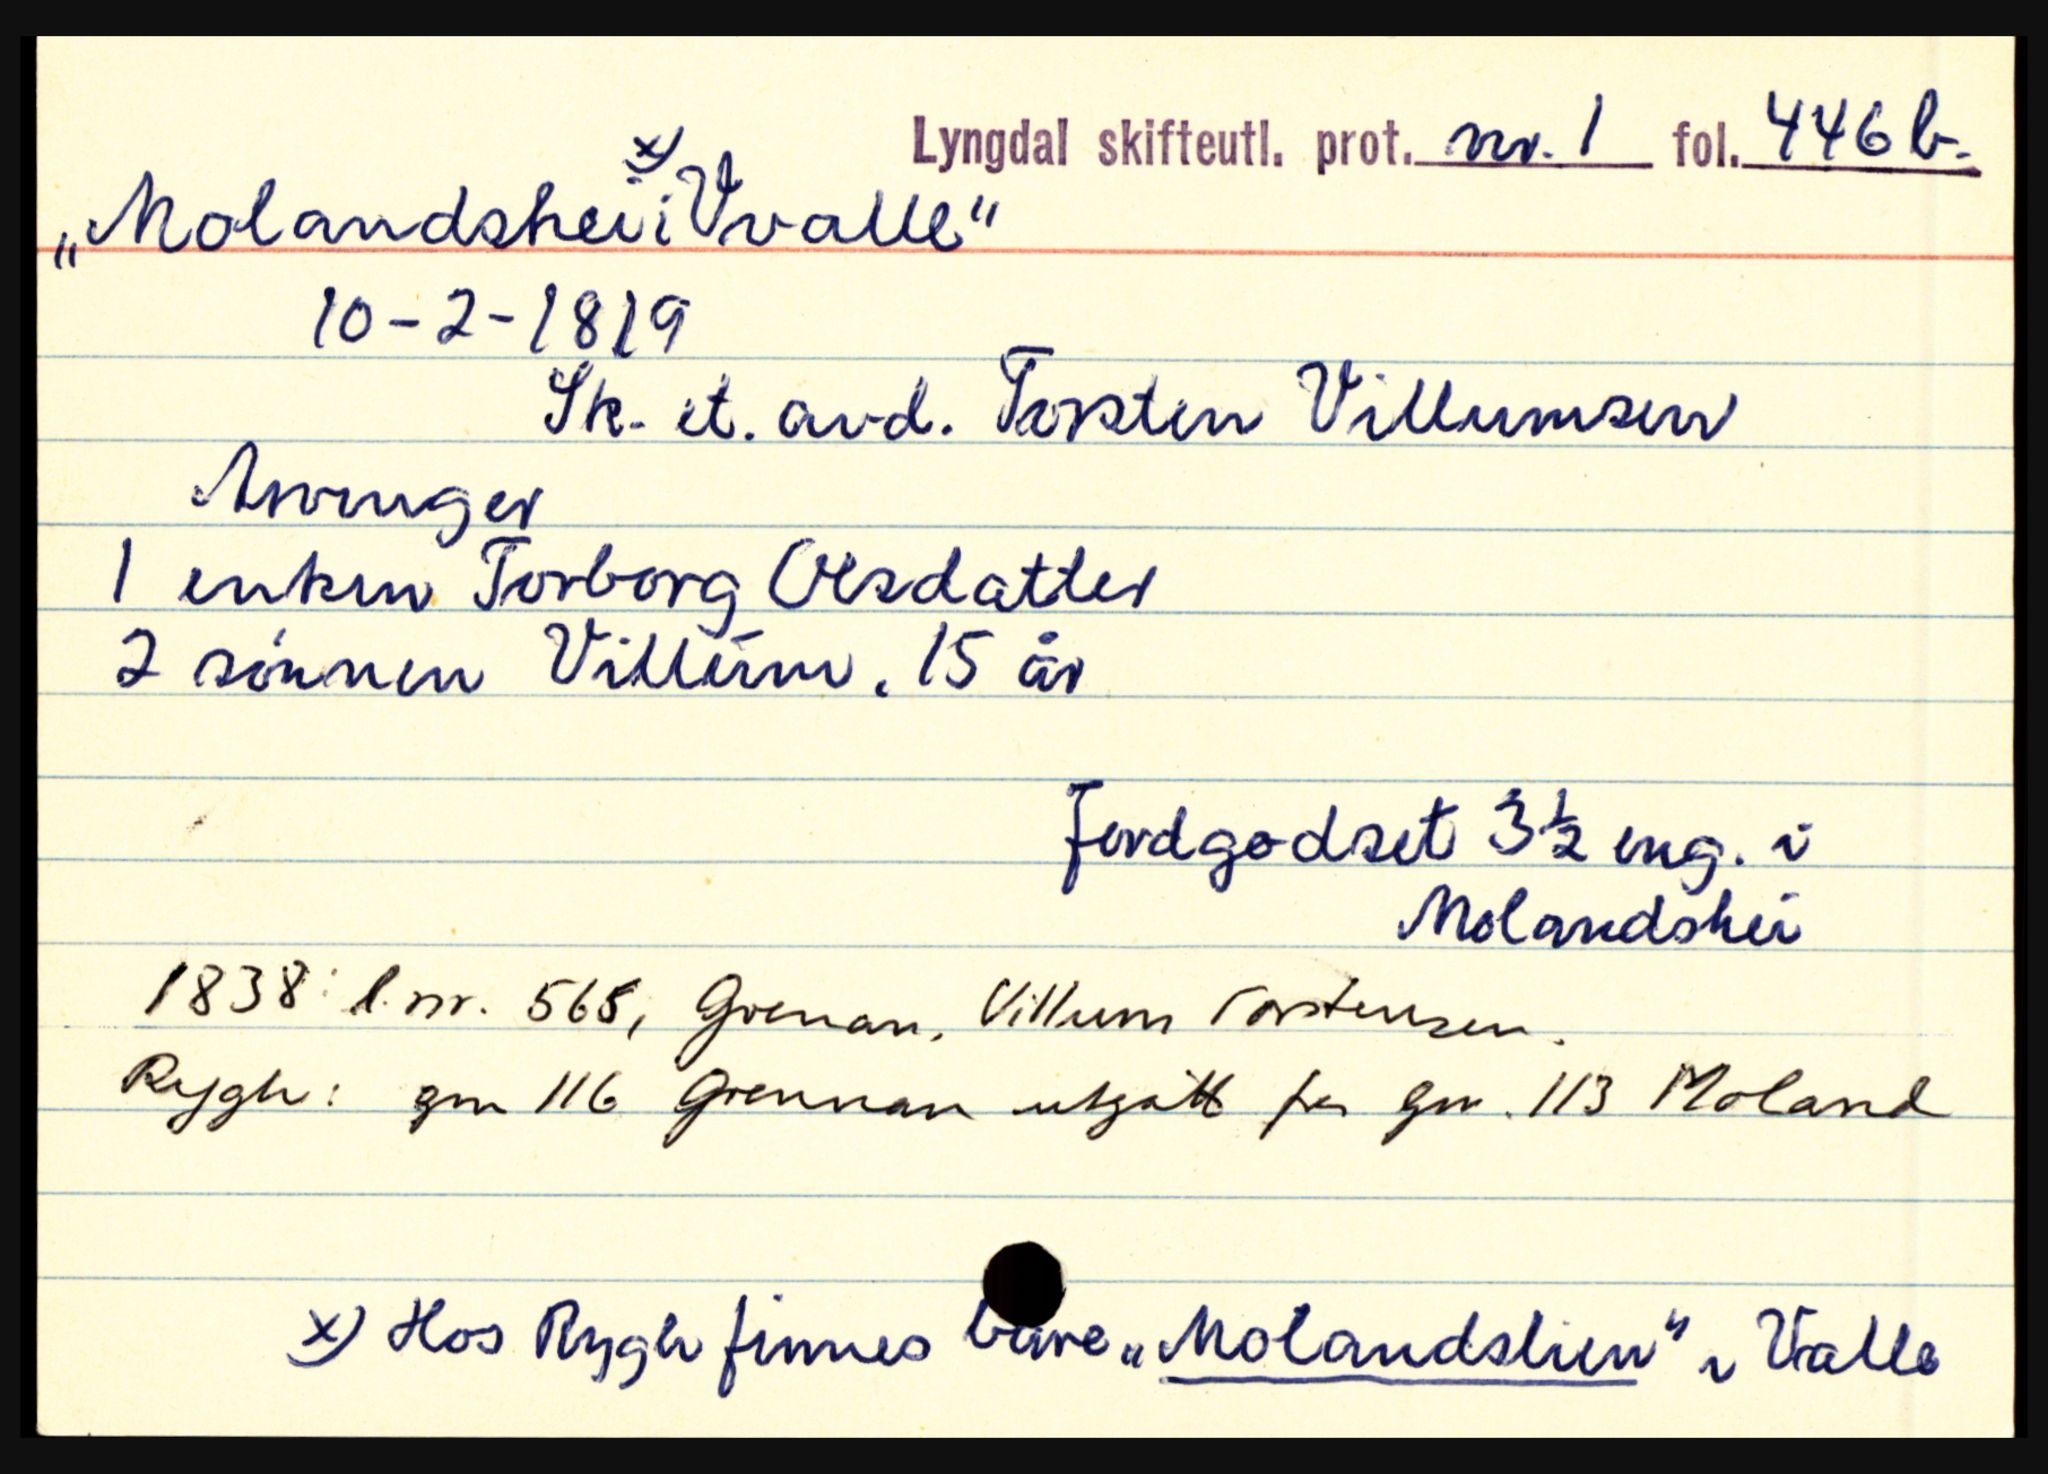 Lyngdal skifteutl. prot. nr. 1 fol. 446 b.
x)
„Molandshei i Vvalle"
10-2-1819
Sk. et. avd. Torsten Villumsen
Arvinger
1 enken Torborg Olsdatter
2 sönnen Villum. 15 år
Jordgodset 3½ eng. i
Molandshei
1838: l.nr. 565, Grenan, Villum Torstensen.
Rygh: gnr 116 Grennan utgått fra gnr. 113 Moland
x) Hos Rygh finnes bare „Molandslien" i Valle